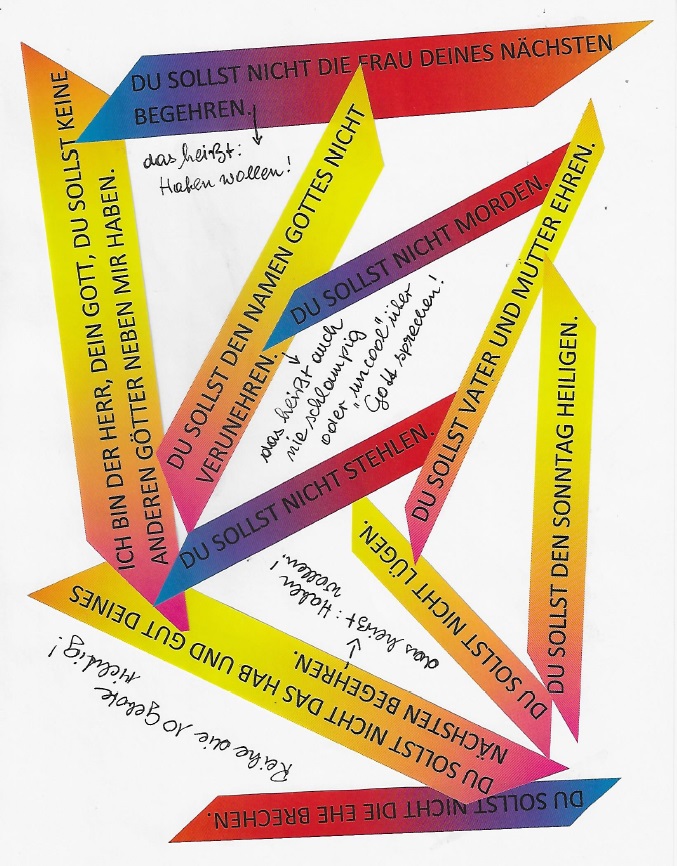 DU SOLLST NICHT DIE FRAU DEINES NÄCHSTEN
BEGEHREN.
das heißt:
Haben wollen!
ICH BIN DER HERR, DEIN GOTT, DU SOLLST KEINE
ANDEREN GÖTTER NEBEN MIR HABEN.
DU SOLLST DEN NAMEN GOTTES NICHT
VERUNEHREN.
das heißt auch
nie schlampig
oder „uncool" über
Gott sprechen!
DU SOLLST NICHT MORDEN.
DU SOLLST VATER UND MUTTER EHREN.
DU SOLLST DEN SONNTAG HEILIGEN.
DU SOLLST NICHT STEHLEN.
DU SOLLST NICHT LÜGEN.
DU SOLLST NICHT DAS HAB UND GUT DEINES
NÄCHSTEN BEGEHREN.
das heißt: Haben
wollen!
Reihe die 10 Gebote
richtig!
DU SOLLST NICHT DIE EHE BRECHEN.